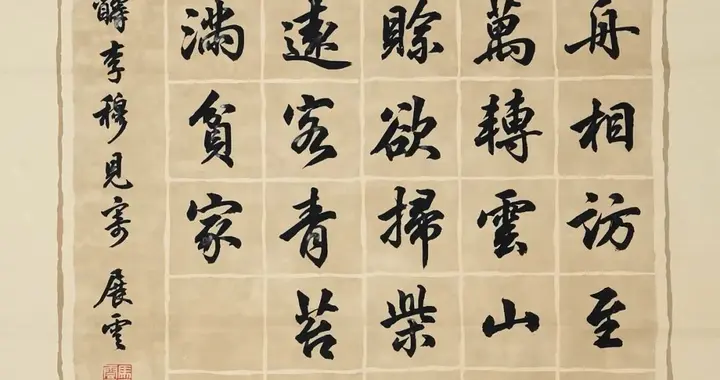 舟相訪至
萬轉雲山
賒欲掃柴
遠客青苔
滿貧家
李穆見寄 展雲